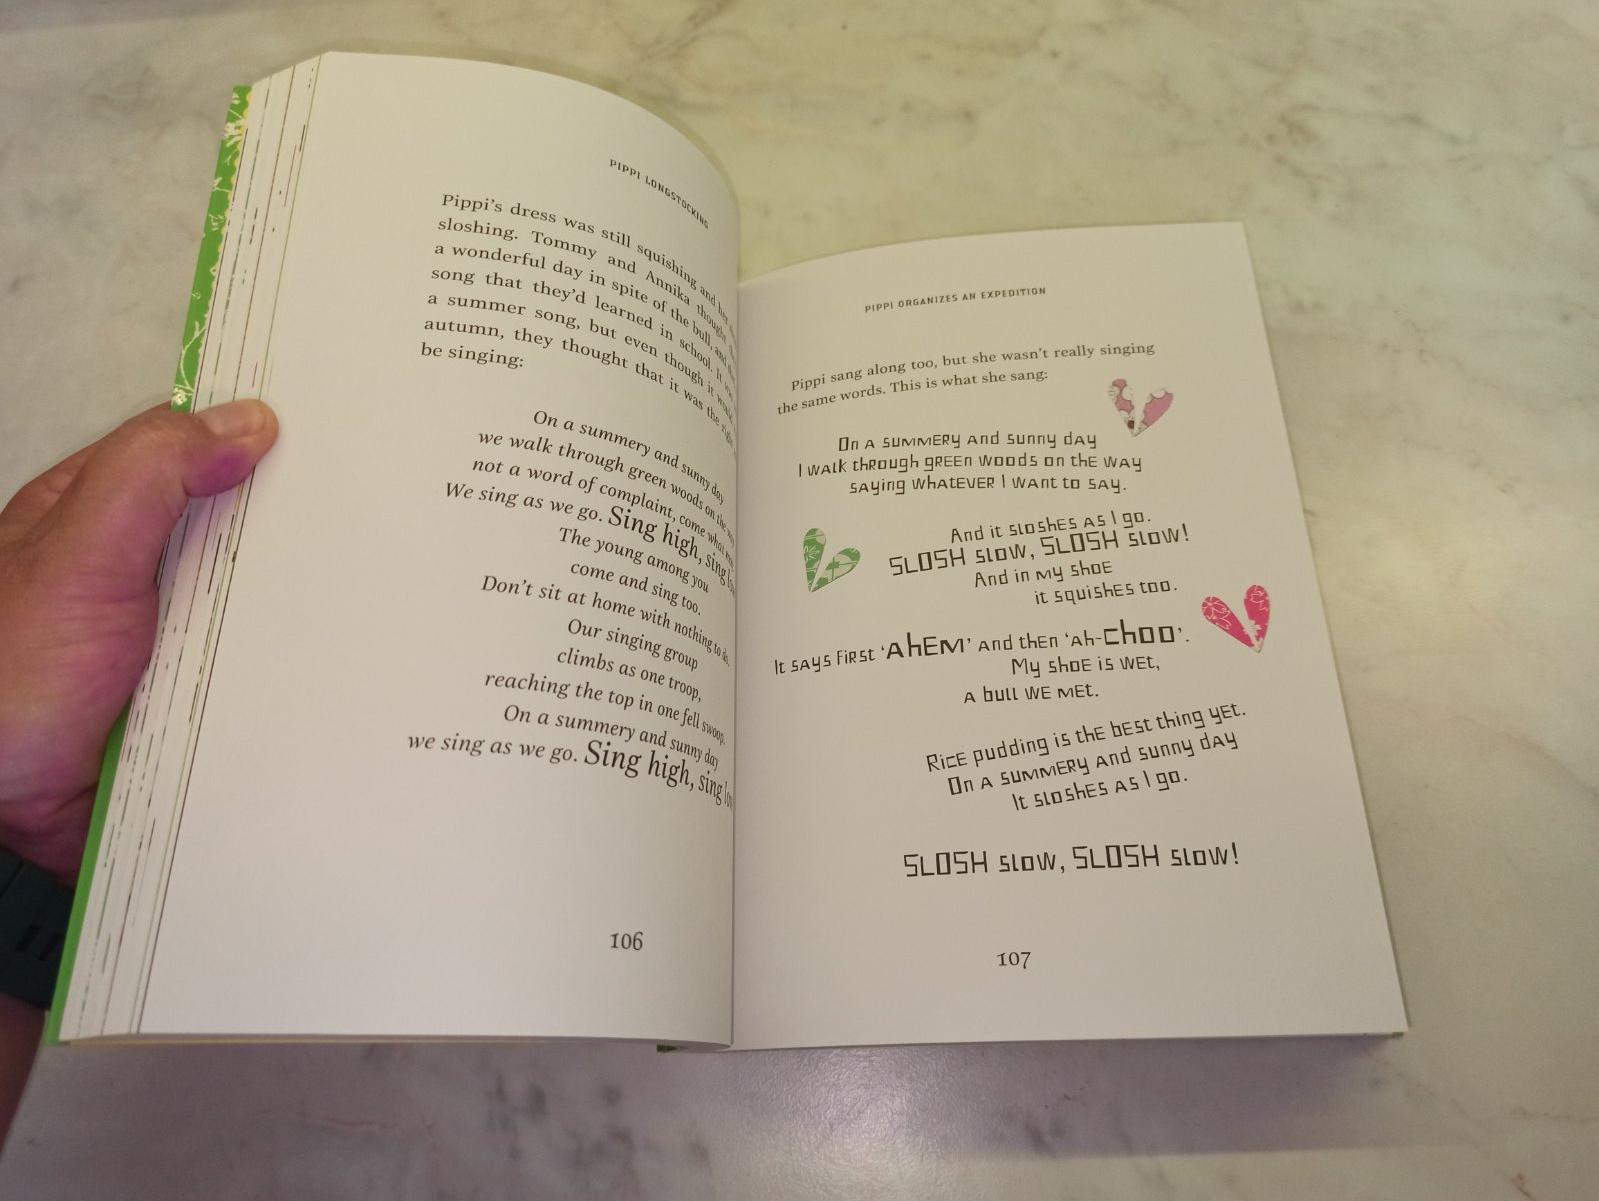 PIPPI LONGSTOCKING
Pippi's dress was still squishing and her
sloshing. Tommy and Annika thought
a wonderful day in spite of the bull, and
song that they'd learned in school. It was
a summer song, but even though it would
autumn, they thought that it was the right
be singing:
On a summery and sunny day
we walk through green woods on the way
not a word of complaint, come what may
We sing as we go. Sing high, sing
The young among you
come and sing too.
Don't sit at home with nothing to do.
Our singing group
climbs as one troop,
reaching the top in one fell swoop.
On a summery and sunny day
we sing as we go. Sing high, sing
106
PIPPI ORGANIZES AN EXPEDITION
Pippi sang along too, but she wasn't really singing
the same words. This is what she sang:
On a summery and sunny day
I walk through green woods on the way
saying whatever I want to say.
And it sloshes as I go.
SLOSH slow, SLOSH slow!
And in my shoe
it squishes too.
It says first 'Ahem' and then 'Ah-choo'.
My shoe is wet,
a bull we met.
Rice pudding is the best thing yet.
On a summery and sunny day
It sloshes as I go.
SLOSH slow, SLOSH slow!
107